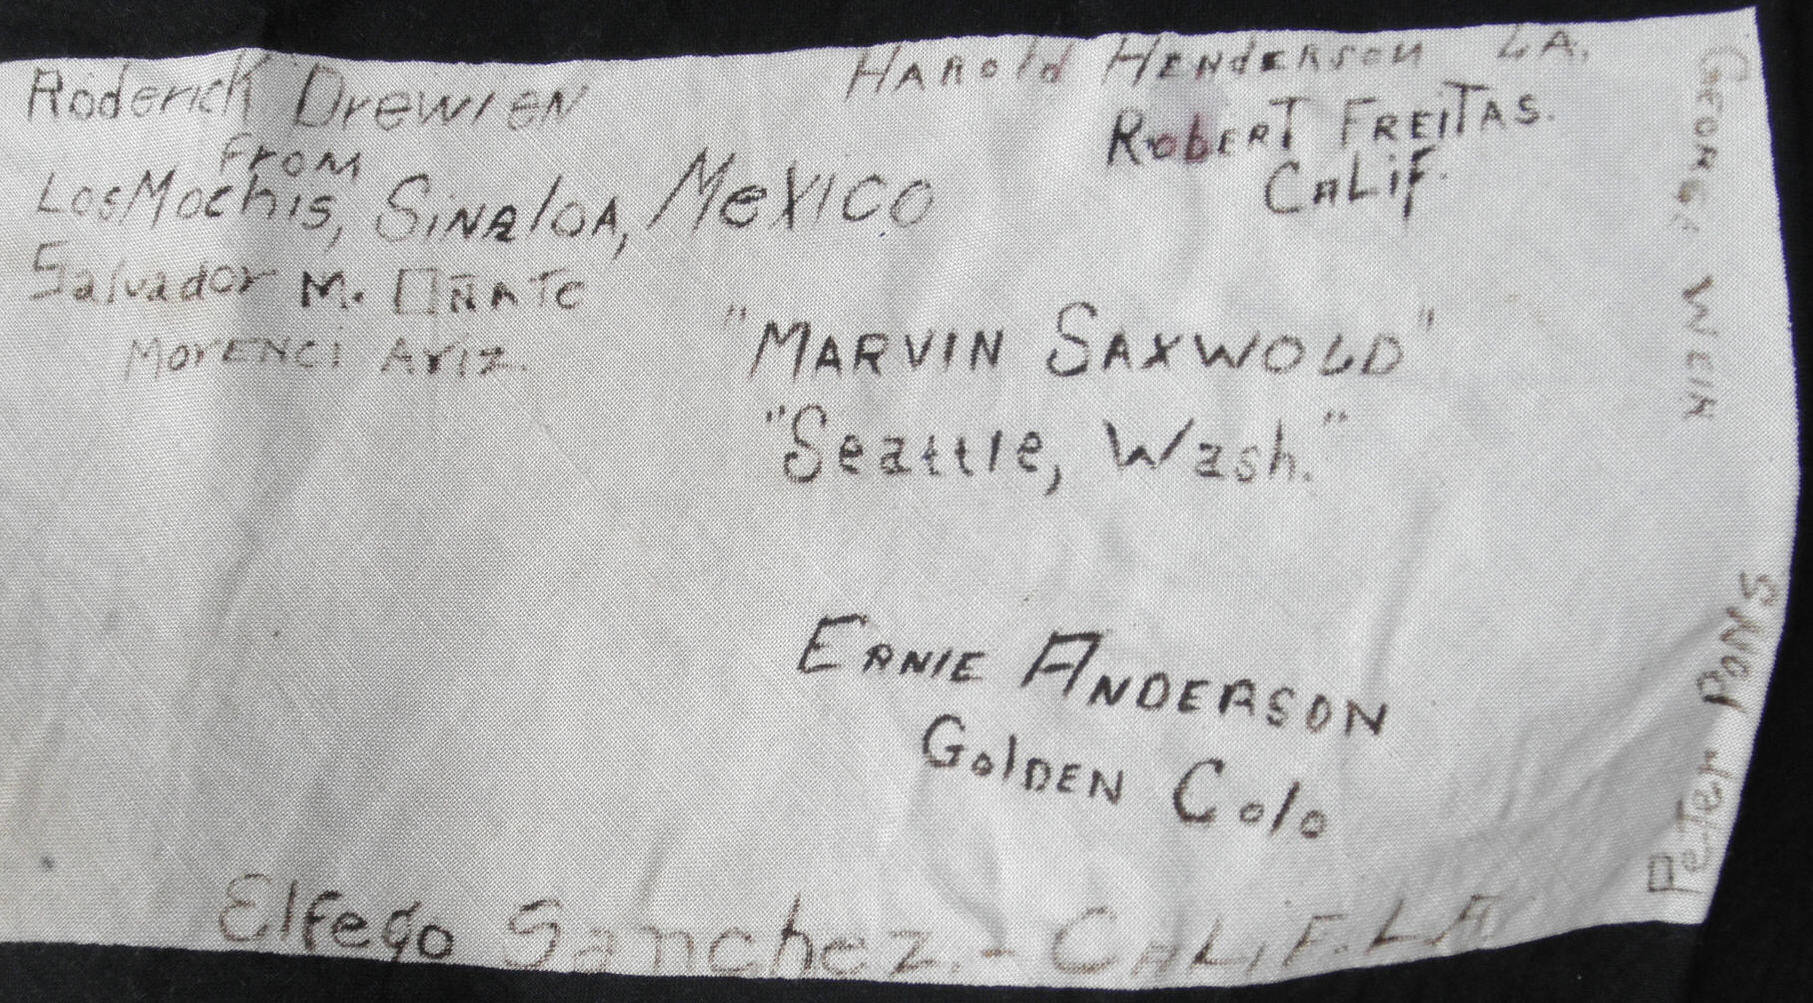 Roderick Drewien
From
Los Mochis, Sinaloa, Mexico
Salvador M. Oñate
Morenci Ariz.
Harold Henderson LA.
Robert Freitas.
Calif.
"MARVIN SAXWOLD"
"Seattle, Wash."
Ernie Anderson
Golden Colo
Elfego Sanchez.- CALIF. LA
George Wein
Peter Pons